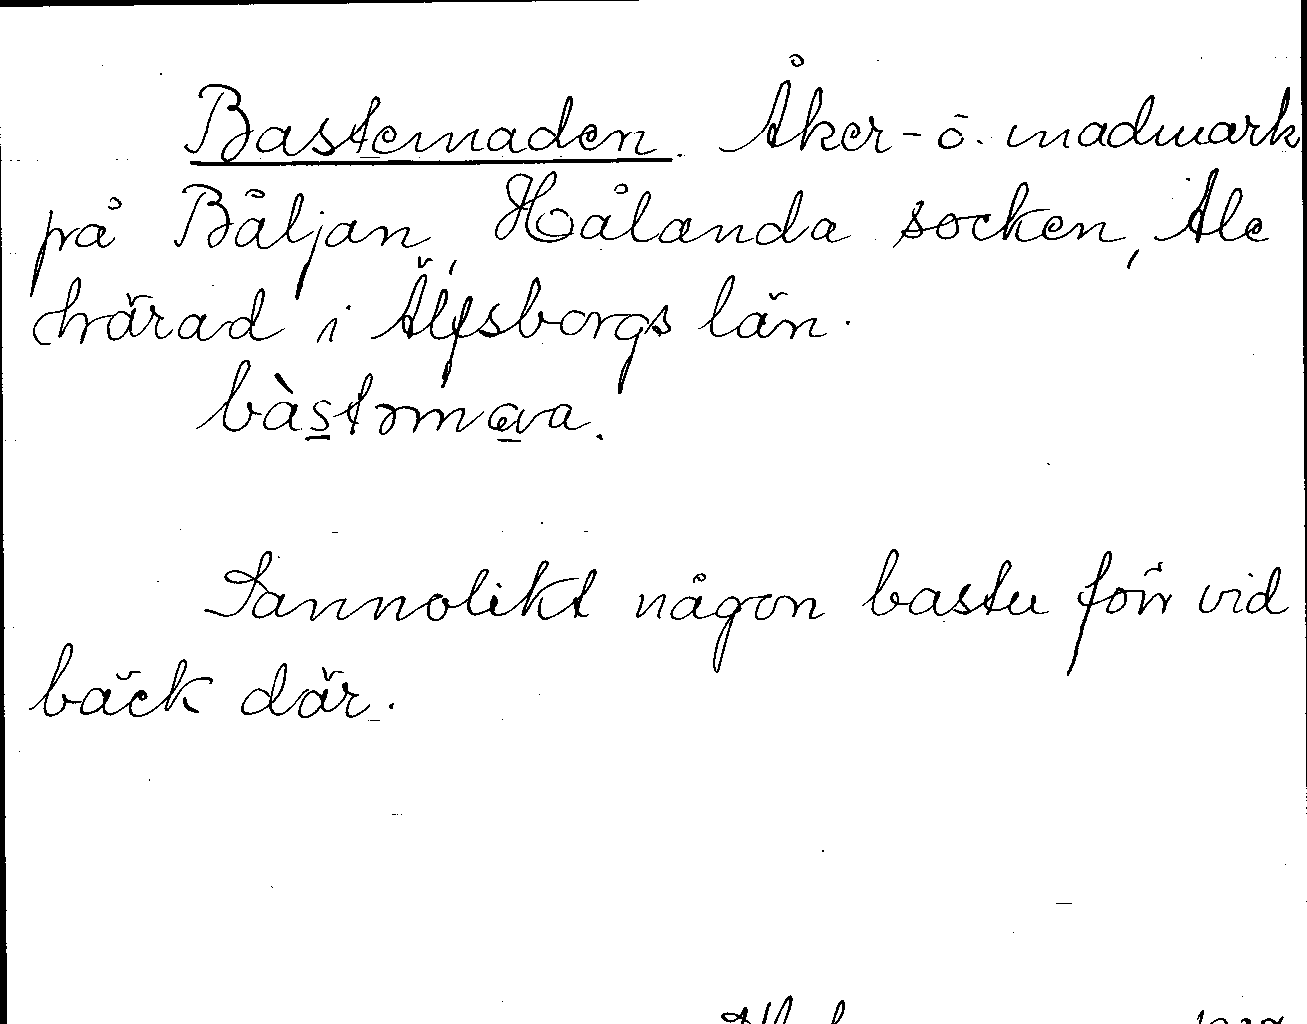 Bastemaden. Åker- o. madmark
på Båljan, Hålanda socken, Ale
härad i Älfsborgs län.
bàstəmɑva.
Sannolikt någon bastu förr vid
bäck där.